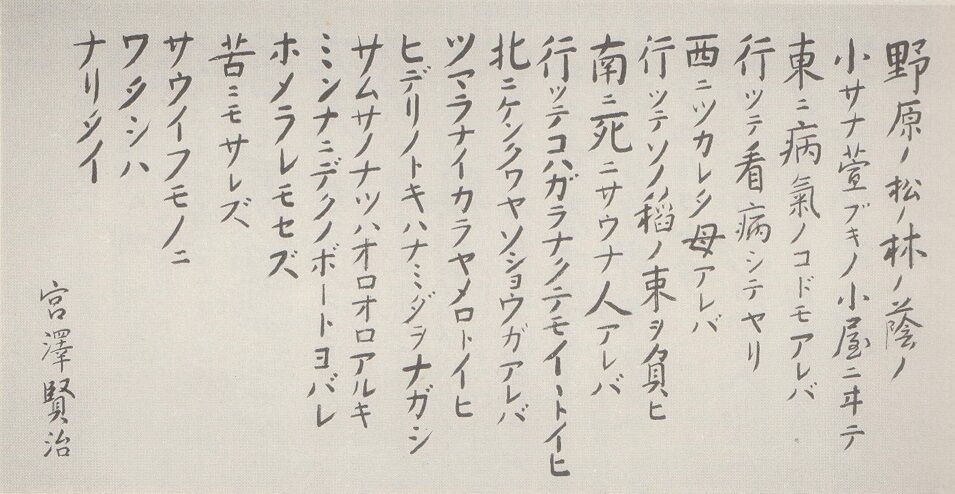 野原ノ松ノ林ノ蔭ノ
小サナ萱ブキノ小屋ニヰテ
東ニ病氣ノコドモアレバ
行ッテ看病シテヤリ
西ニツカレタ母アレバ
行ッテソノ稻ノ束ヲ負ヒ
南ニ死ニサウナ人アレバ
行ッテコハガラナクテモイヽトイヒ
北ニケンクワヤソショウガアレバ
ツマラナイカラヤメロトイヒ
ヒデリノトキハナミダヲナガシ
サムサノナツハオロオロアルキ
ミンナニデクノボートヨバレ
ホメラレモセズ
苦ニモサレズ
サウイフモノニ
ワタシハ
ナリタイ
宮澤賢治